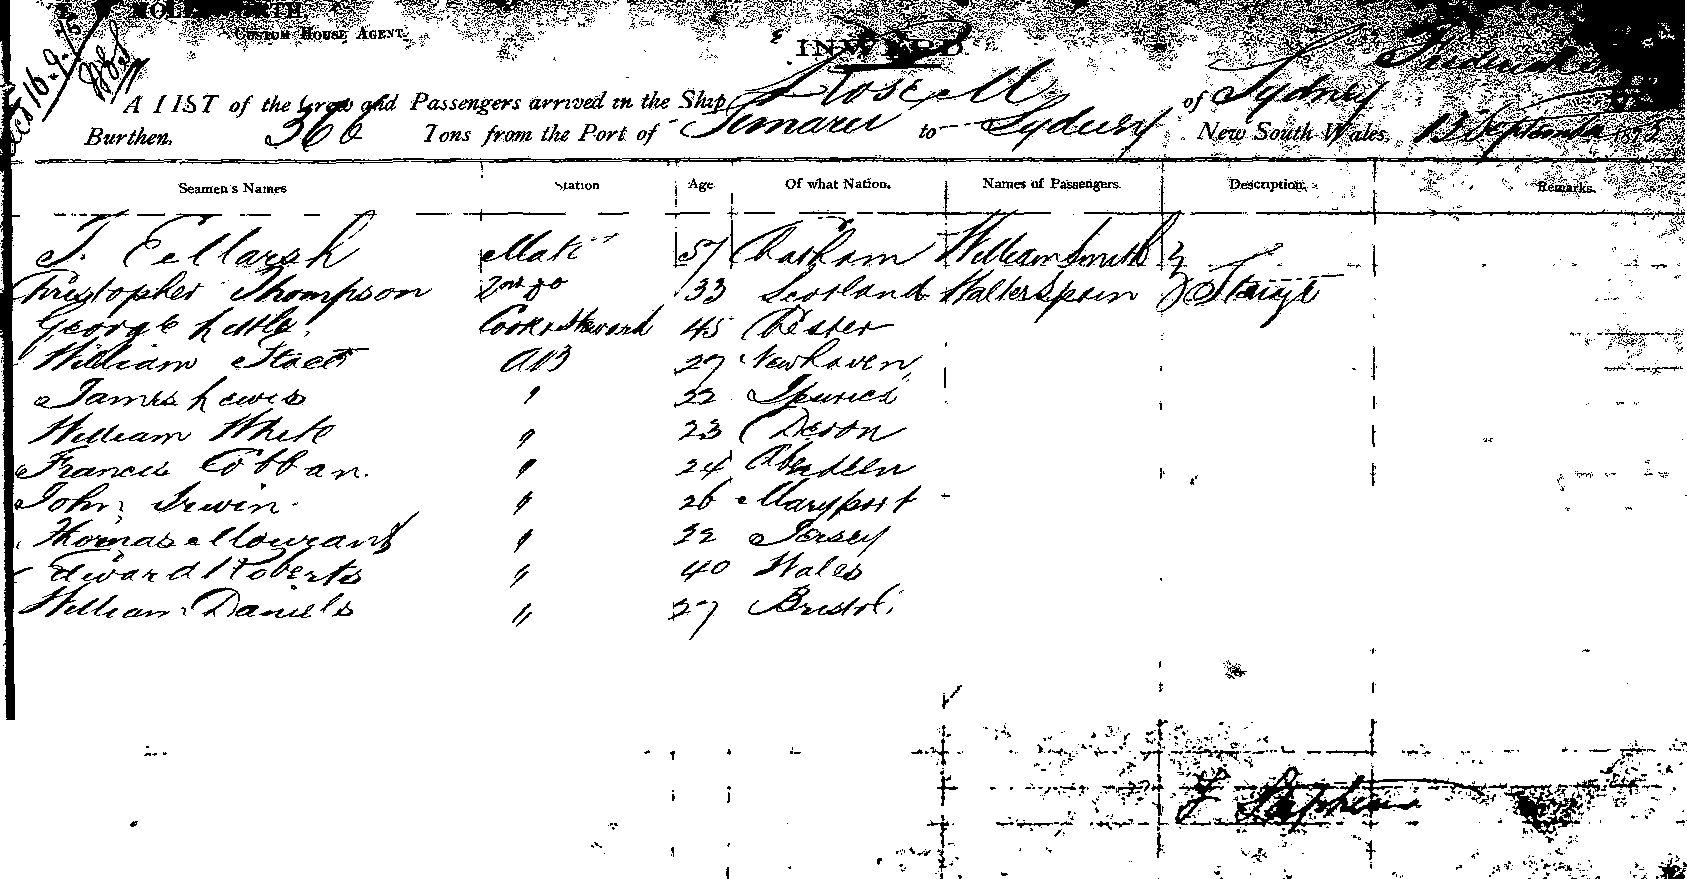 CUSTOM HOUSE AGENT.
INWARD
A LIST of the Crew and Passengers arrived in the Ship Rose M of Sydney Frederick
Burthen. 366 Tons from the Port of Timaru to Sydney New South Wales, 12 September 1875
Seamen's Names Station Age Of what Nation. Names of Passengers. Description. Remarks.
J. Mate 57 Chatham William Smith
Christopher Thompson 2nd do 33 Scotland Walter Spein
George Little Cook & Steward 45 Chester
William AB 27 Newhaven
James Lewis " 22
William White " 23 Devon
Francis Cobban. " 24 Aberdeen
John Irwin " 26 Maryport
Thomas Mourant " 22 Jersey
Edward Roberts " 40 Wales
William Daniels " 27 Bristol
Stephens